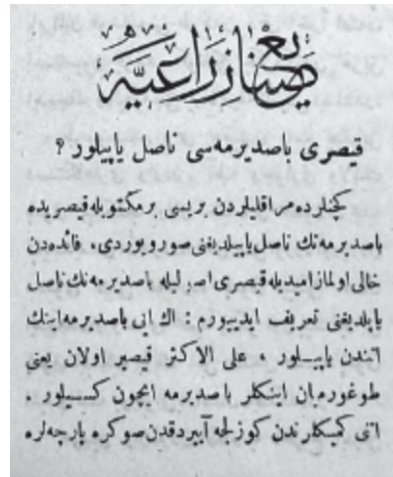 صنایع زراعیه
قیصری باصدیرمه‌سی ناصل یاپیلور ؟
كچنلرده مراقلیلردن بریسی بر مكتوبله قیصریده
باصدیرمه‌نك ناصل یاپیلدیغنی صورویوردی، فائده‌دن
خالی اولماز امیدیله قیصری اصولیله باصدیرمه‌نك ناصل
یاپلدیغنی تعریف ایدییورم : اك ایی باصدیرمه اینك
اتندن یاپیلور ، علی الاكثر قیصیر اولان یعنی
طوغورمیان اینكلر باصدیرمه ایچون كسیلور .
اتی كمیكلرندن كوزلجه آییردقدن صوكره پارچه‌لره